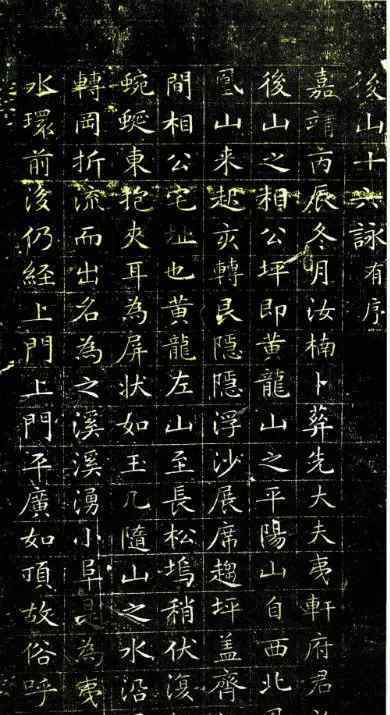 後山十六詠有序
嘉靖丙辰冬月汝楠卜葬先大夫夷軒府君
後山之相公坪即黃龍山之平陽山自西北
凰山來起亥轉艮隱隱浮沙展席趨坪蓋齊
間相公宅址也黃龍左山至長松塢稍伏復
蜿蜒東抱夾耳為屏狀如玉几隨山之水沿
轉岡折流而出名為之溪溪湧小阜是為夷
水環前後仍經上門上門平廣如頂故俗呼